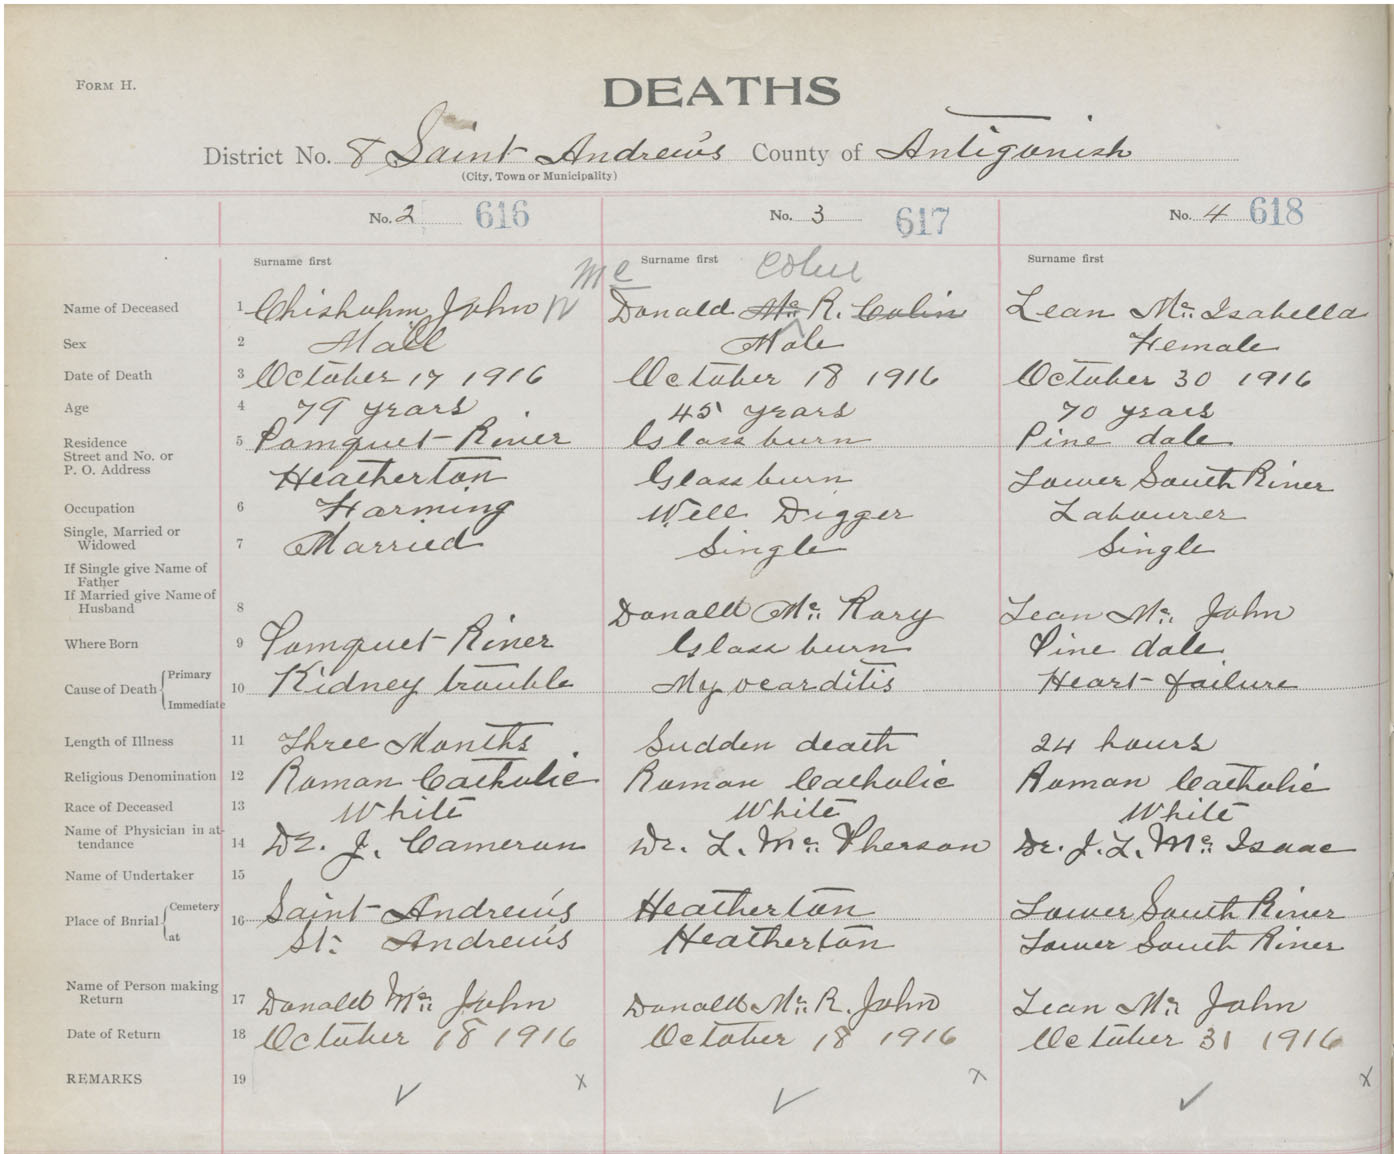 FORM H.
DEATHS
District No. 8 Saint Andrew's County of Antigonish
(City, Town or Municipality)
No. 2 616 No. 3 617 No. 4 618
Surname first Surname first Surname first
Mc Colin
Name of Deceased 1 Chisholm, John Donald Mc R. Colin Lean Mc Isabella
Sex 2 Mall Male Female
Date of Death 3 October 17 1916 October 18 1916 October 30 1916
Age 4 79 years 45 years 70 years
Residence 5 Pomquet River Glassburn Pine dale
Street and No. or
P. O. Address Heatherton Glassburn Lower South River
Occupation 6 Farming Well Digger Labourer
Single, Married or
Widowed 7 Married Single Single
If Single give Name of
Father
If Married give Name of
Husband 8 Donald Mc Rory Lean Mc John
Where Born 9 Pomquet River Glassburn Pine dale
Cause of Death Primary 10 Kidney trouble Myocarditis Heart failure
Immediate
Length of Illness 11 Three Months Sudden death 24 hours
Religious Denomination 12 Roman Catholic Roman Catholic Roman Catholic
Race of Deceased 13 White White White
Name of Physician in at-
tendance 14 Dr. J. Cameron Dr. L. Mc Pherson Dr. J. L. Mc Isaac
Name of Undertaker 15
Place of Burial Cemetery 16 Saint Andrew's Heatherton Lower South River
at St. Andrew's Heatherton Lower South River
Name of Person making
Return 17 Donald Mc John Donald Mc R. John Lean Mc John
Date of Return 18 October 18 1916 October 18 1916 October 31 1916
REMARKS 19
x x x